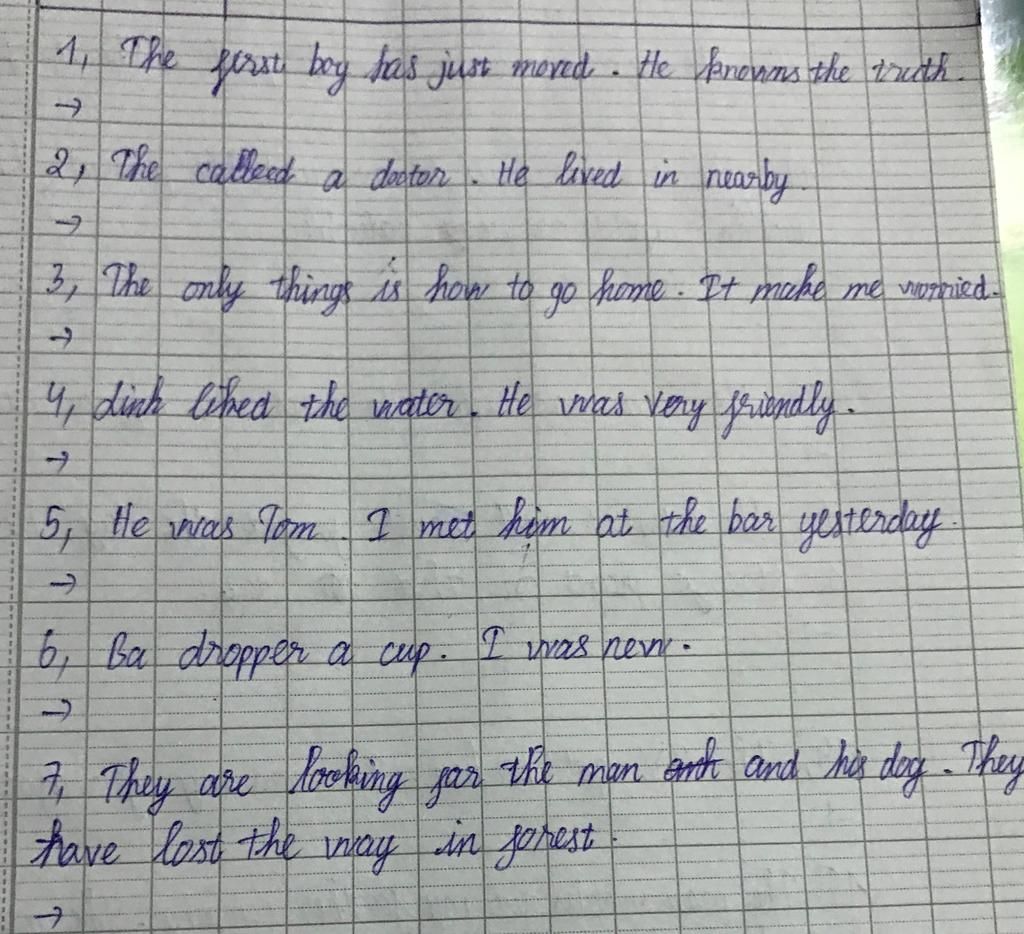 1, The first boy has just moved. He knowns the truth.
→
2, The called a doctor. He lived in nearby.
→
3, The only things is how to go home. It make me worried.
→
4, dinh liked the water. He was very friendly.
→
5, He was Tom. I met him at the bar yesterday.
→
6, Ba dropper a cup. I was new.
→
7, They are looking for the man and his dog. They
have lost the way in forest.
→